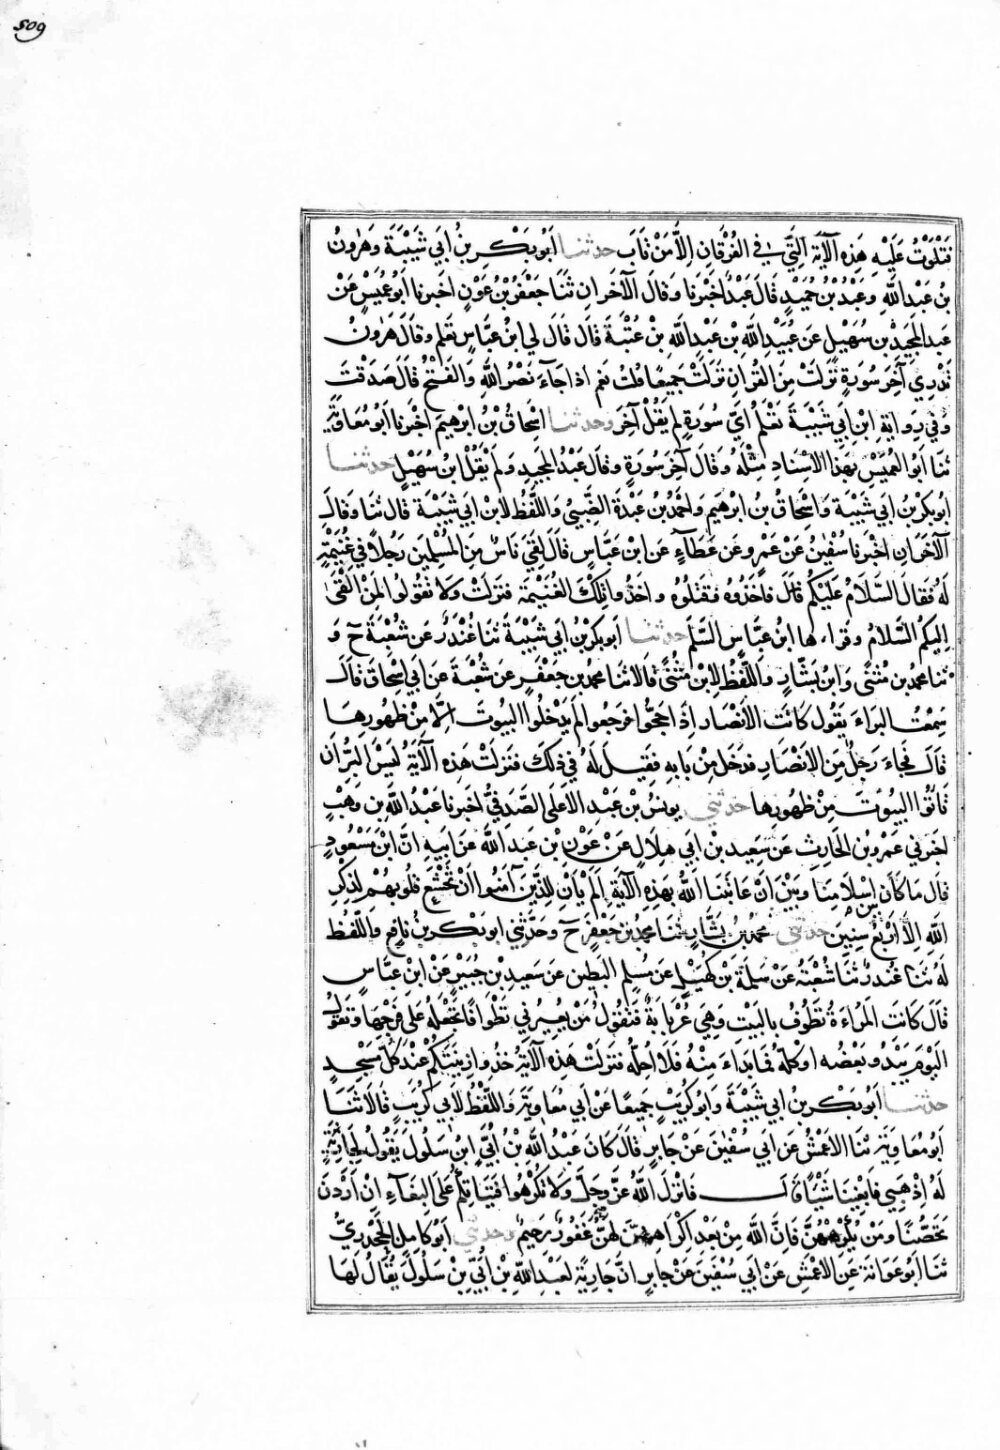 509
فَتَلَوْتُ عَلَيْهِ هَذِهِ الآيَةَ الَّتِي فِي الفُرْقَانِ اِلاَّ مَنْ تَابَ حدثنا اَبُو بَكْرِ بنُ اَبِي شَيْبَةَ وَهَرُونُ
بْنُ عَبْدِ اللّٰهِ وَعَبْدُ بْنُ حُمَيْدٍ قَالَ عَبْدٌ اَخْبَرَنَا وَقَالَ الآخَرَانِ ثَنَا جَعْفَرُ بْنُ عَوْنٍ اَخْبَرَنَا اَبُو عُمَيْسٍ عَنْ
عَبْدِ المَجِيدِ بْنِ سُهَيْلٍ عَنْ عُبَيْدِ اللّٰهِ بْنِ عَبْدِ اللّٰهِ بْنِ عُتْبَةَ قَالَ قَالَ لِي ابْنُ عَبَّاسٍ تَعْلَمُ وَقَالَ هَرُونُ
تَدْرِي آخِرَ سُورَةٍ نَزَلَتْ مِنَ القُرْآنِ نَزَلَتْ جَمِيعًا قُلْتُ نَعَمْ اِذَا جَآءَ نَصْرُ اللّٰهِ وَالْفَتْحُ قَالَ صَدَقْتَ
وَفِي رِوَايَةِ ابْنِ اَبِي شَيْبَةَ تَعْلَمُ اَيُّ سُورَةٍ لَمْ يَقُلْ آخِرَ وحدثنا اِسْحَاقُ بْنُ اِبْرهِيمَ اَخْبَرَنَا اَبُو مُعَاوِيَةَ
ثَنَا اَبُو العُمَيْسِ بِهَذَا الاِسْنَادِ مِثْلَهُ وَقَالَ آخِرَ سُورَةٍ وَقَالَ عَبْدُ المَجِيدِ وَلَمْ يَقُلْ ابْنُ سُهَيْلٍ حدثنا
اَبُو بَكْرِ بْنُ اَبِي شَيْبَةَ وَاِسْحَاقُ بْنُ اِبْرهِيمَ وَاَحْمَدُ بْنُ عَبْدَةَ الضَّبِّيُّ وَاللَّفْظُ لِابْنِ اَبِي شَيْبَةَ قَالَ ثَنَا وَقَالَ
الآخَرَانِ اَخْبَرَنَا سُفْيٰنُ عَنْ عَمْرٍو عَنْ عَطَآءٍ عَنِ ابْنِ عَبَّاسٍ قَالَ لَقِيَ نَاسٌ مِنَ المُسْلِمِينَ رَجُلاً فِي غُنَيْمَةٍ
لَهُ فَقَالَ السَّلَامُ عَلَيْكُمْ قَالَ فَاَخَذُوهُ فَقَتَلُوهُ وَاَخَذُوا تِلْكَ الغُنَيْمَةَ فَنَزَلَتْ وَلَا تَقُولُوا لِمَنْ اَلْقَى
اِلَيْكُمُ السَّلَامُ وَقَرَاَهَا ابْنُ عَبَّاسٍ السَّلَمَ حدثنا اَبُو بَكْرِ بْنُ اَبِي شَيْبَةَ ثَنَا غُنْدَرٌ عَنْ شُعْبَةَ ح وَ
ثَنَا مُحَمَّدُ بْنُ مُثَنَّى وَابْنُ بَشَّارٍ وَاللَّفْظُ لِابْنِ مُثَنَّى قَالَا ثَنَا مُحَمَّدُ بْنُ جَعْفَرٍ عَنْ شُعْبَةَ عَنْ اَبِي اِسْحَاقَ قَالَ
سَمِعْتُ البَرَاءَ يَقُولُ كَانَتِ الاَنْصَارُ اِذَا حَجُّوا فَرَجَعُوا لَمْ يَدْخُلُوا البُيُوتَ اِلَّا مِنْ ظُهُورِهَا
قَالَ فَجَاءَ رَجُلٌ مِنَ الاَنْصَارِ فَدَخَلَ مِنْ بَابِهِ فَقِيلَ لَهُ فِي ذَلِكَ فَنَزَلَتْ هَذِهِ الآيَةُ لَيْسَ البِرُّ اَنْ
تَاْتُوا البُيُوتَ مِنْ ظُهُورِهَا حدثني يُونُسُ بْنُ عَبْدِ الاَعْلَى الصَّدَفِيُّ اَخْبَرَنَا عَبْدُ اللّٰهِ بْنُ وَهْبٍ
اَخْبَرَنِي عَمْرُو بْنُ الحَارِثِ عَنْ سَعِيدِ بْنِ اَبِي هِلَالٍ عَنْ عَوْنِ بْنِ عَبْدِ اللّٰهِ عَنْ اَبِيهِ اَنَّ ابْنَ مَسْعُودٍ
قَالَ مَا كَانَ بَيْنَ اِسْلَامِنَا وَبَيْنَ اَنْ عَاتَبَنَا اللّٰهُ بِهَذِهِ الآيَةِ اَلَمْ يَاْنِ لِلَّذِينَ آمَنُوا اَنْ تَخْشَعَ قُلُوبُهُمْ لِذِكْرِ
اللّٰهِ اِلاَّ اَرْبَعُ سِنِينَ حدثني مُحَمَّدُ بْنُ بَشَّارٍ ثَنَا مُحَمَّدُ بْنُ جَعْفَرٍ ح وَحَدَّثَنِي اَبُو بَكْرِ بْنُ نَافِعٍ وَاللَّفْظُ
لَهُ ثَنَا غُنْدَرٌ ثَنَا شُعْبَةُ عَنْ سَلَمَةَ بْنِ كُهَيْلٍ عَنْ مُسْلِمِ البَطِينِ عَنْ سَعِيدِ بْنِ جُبَيْرٍ عَنِ ابْنِ عَبَّاسٍ
قَالَ كَانَتِ المَرْاَةُ تَطُوفُ بِالبَيْتِ وَهِيَ عُرْيَانَةٌ فَتَقُولُ مَنْ يُعِيرُنِي تَطْوَافًا تَجْعَلُهُ عَلَى فَرْجِهَا وَتَقُولُ
اليَوْمَ يَبْدُو بَعْضُهُ اَوْ كُلُّهُ فَمَا بَدَاَ مِنْهُ فَلَا اُحِلُّهُ فَنَزَلَتْ هَذِهِ الآيَةُ خُذُوا زِينَتَكُمْ عِنْدَ كُلِّ مَسْجِدٍ
حدثنا اَبُو بَكْرِ بنُ اَبِي شَيْبَةَ وَاَبُو كُرَيْبٍ جَمِيعًا عَنْ اَبِي مُعَاوِيَةَ وَاللَّفْظُ لِاَبِي كُرَيْبٍ قَالَا ثَنَا
اَبُو مُعَاوِيَةَ ثَنَا الاَعْمَشُ عَنْ اَبِي سُفْيٰنَ عَنْ جَابِرٍ قَالَ كَانَ عَبْدُ اللّٰهِ بْنُ اُبَيٍّ ابْنُ سَلُولَ يَقُولُ لِجَارِيَةٍ
لَهُ اِذْهَبِي فَابْغِينَا شَيْئًا قَالَ فَاَنْزَلَ اللّٰهُ عَزَّ وَجَلَّ وَلَا تُكْرِهُوا فَتَيَاتِكُمْ عَلَى البِغَآءِ اِنْ اَرَدْنَ
تَحَصُّنًا وَمَنْ يُكْرِهْهُنَّ فَاِنَّ اللّٰهَ مِنْ بَعْدِ اِكْرَاهِهِنَّ لَهُنَّ غَفُورٌ رَحِيمٌ وحدثني اَبُو كَامِلٍ الجَحْدَرِيُّ
ثَنَا اَبُو عَوَانَةَ عَنِ الاَعْمَشِ عَنْ اَبِي سُفْيٰنَ عَنْ جَابِرٍ اَنَّ جَارِيَةً لِعَبْدِ اللّٰهِ بْنِ اُبَيِّ بْنِ سَلُولَ يُقَالُ لَهَا